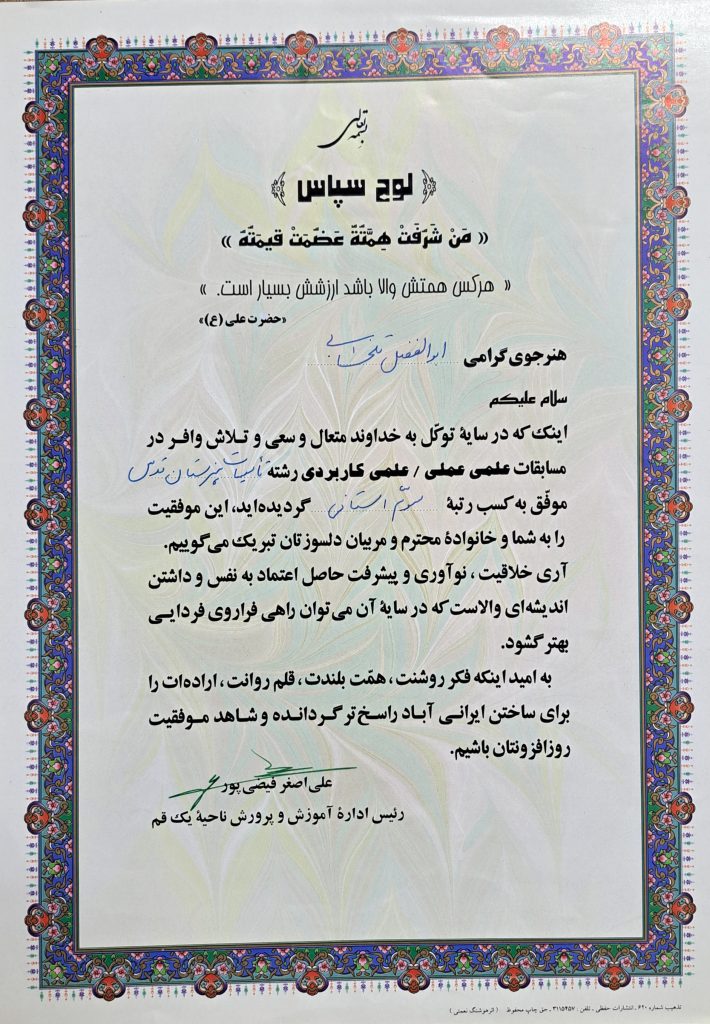 بسمه تعالی
﴿ لوح سپاس ﴾
« مَنْ شَرُفَتْ هِمَّتُهُ عَضُمَتْ قیمَتُهُ »
« هرکس همتش والا باشد ارزشش بسیار است. »
«حضرت علی (ع)»
هنرجوی گرامی ابوالفضل
سلام علیکم
اینک که در سایۀ توکّل به خداوند متعال و سعی و تلاش وافر در
مسابقات علمی عملی / علمی کاربردی رشته تأسیسات هنرستان قدس
موفّق به کسب رتبۀ سوّم استانی گردیده‌اید، این موفقیت
را به شما و خانوادۀ محترم و مربیان دلسوزتان تبریک می‌گوییم.
آری خلاقیت ، نوآوری و پیشرفت حاصل اعتماد به نفس و داشتن
اندیشه‌ای والاست که در سایۀ آن می‌توان راهی فراروی فردایی
بهتر گشود.
به امید اینکه فکر روشنت ، همّت بلندت ، قلم روانت ، اراده‌ات را
برای ساختن ایرانی آباد راسخ‌تر گردانده و شاهد موفقیت
روزافزونتان باشیم.
علی اصغر فیضی‌پور
رئیس ادارۀ آموزش و پرورش ناحیۀ یک قم
تذهیب شماره ۶۲۰ ـ انتشارات حفظی ـ تلفن : ۳۱۱۵۴۵۷ ـ حق چاپ محفوظ ( اثر هوشنگ نعمتی )